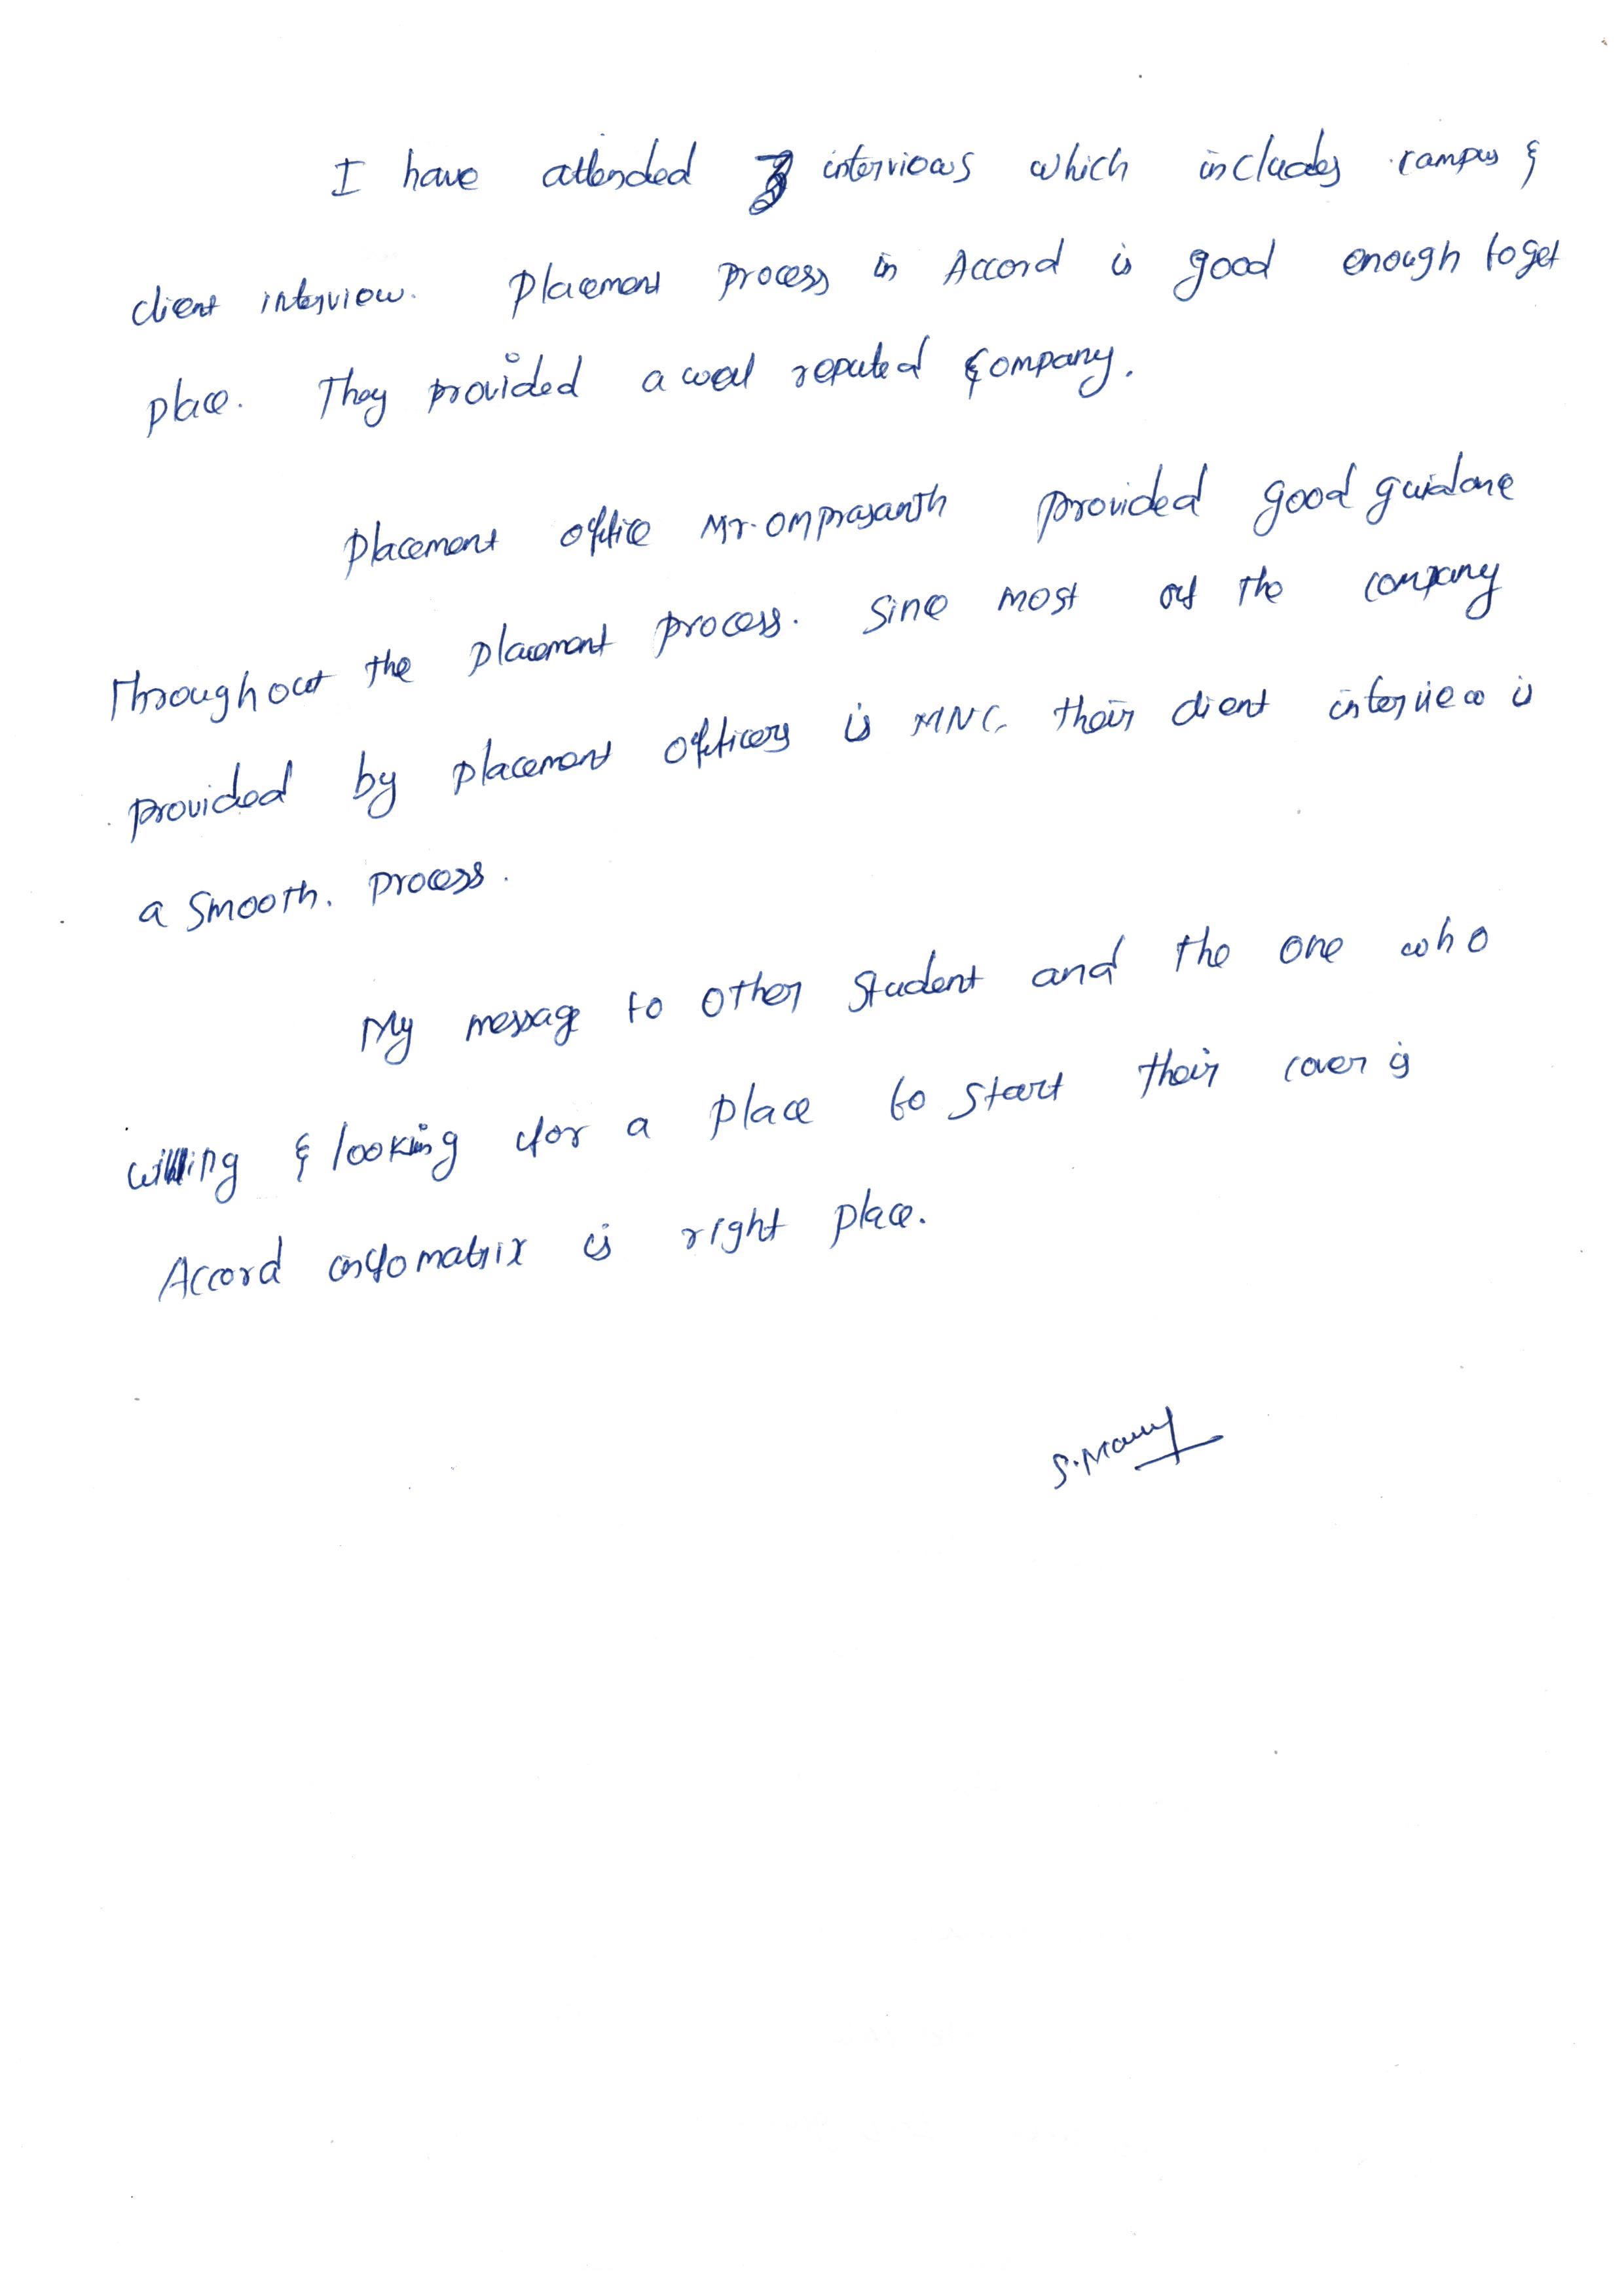 I have attended 3 interviows which includes campus &
client interview. Placement process in Accord is good enough to get
place. They provided a well reputed company.
Placement office Mr. Omprasanth provided good guidane
Throughout the placement process. Sine most of the company
provided by placement officers is MNC, their client interview is
a smooth. process.
My message to other student and the one who
willing & looking for a place to start their carer is
Accord infomatrix is right place.